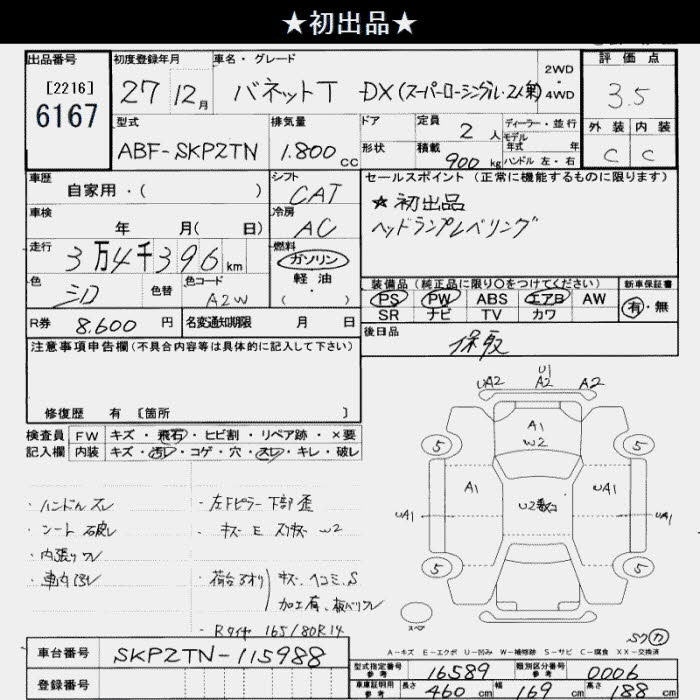 ★初出品★
出品番号 初度登録年月 車名・グレード 2WD・4WD 評価点
[2216]
6167
27 12月 バネットT DX(スーパーローシングル・ 3.5
型式 排気量 ドア 定員 2人 ディーラー・並行 外装 内装
モデル年式 年式
ABF-SKP2TN 1.800cc 形状 積載 900kg ハンドル 左・右 C C
車歴 シフト セールスポイント(正常に機能するものに限ります)
自家用・( ) CAT ★初出品
車検 冷房 ヘッドランプレベリング
年 月( 日) AC
走行 燃料
3万4千396km ガソリン
色 色替 色コード 軽油 装備品(純正品に限り○をつけてください) 新車保証書
シロ A2W ( ・ ) PS PW ABS エアB AW 有・無
SR ナビ TV カワ
R券 8.600円 名変通知期限 月 日 後日品
注意事項申告欄(不具合内容等は具体的に記入して下さい) 保取
修復歴 有 [箇所 ]
検査員 FW キズ・飛石・ヒビ割・リペア跡・×要
記入欄 内装 キズ・汚レ・コゲ・穴・スレ・キレ・破レ
・ハンドルスレ ・左Fピラー下部歪
・シート破レ ・キズ E W2
・内張りワレ
・車内汚レ ・荷台アオリ キズ、ヘコミ、S
加工有、板バリワレ
・Rタイヤ 165/80R14
UA2 U1 A2 A2
A1
W2
5 5
A1 A1
UA1 U2 UA1
5 5
スペア
A-キズ E-エクボ U-凹み W-補修跡 S-サビ C-腐食 XX-交換済
車台番号 SKP2TN-115988
登録番号
型式指定番号 参考 16589 類別区分番号 参考 0006
車庫証明用 参考 長さ 460cm 幅 169cm 高さ 188cm